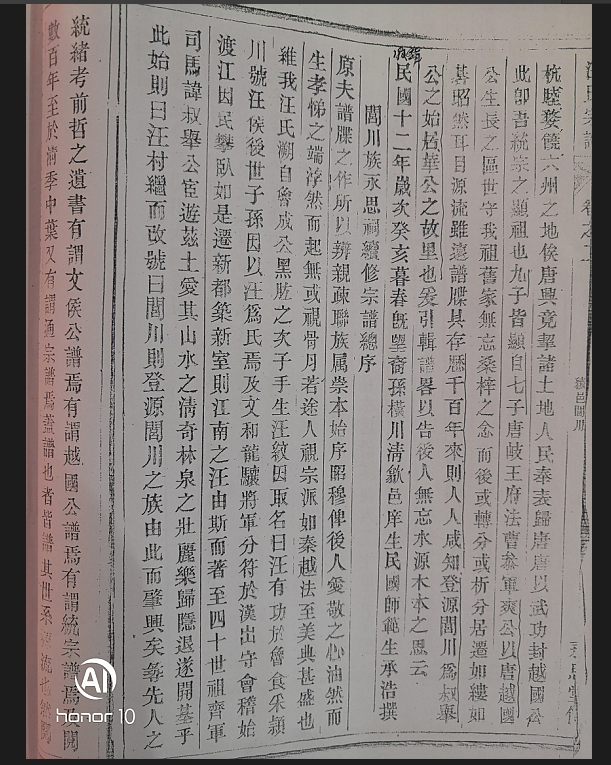 杭睦婺饒六州之地俟唐興竟挈諸土地人民奉表歸唐唐以武功封越國公
此卽吾統宗之顯祖也九子皆顯自七子唐岐王府法曹參軍爽公以唐越國
公生長之區世守我祖舊家無忘桑梓之念而後或轉分或析分居遷如縷如
碁昭然耳目源流雖遠譜牒具存歷千百年來則人人咸知登源閭川爲叔舉
公之始居華公之故里也爰引輯譜畧以告後人無忘水源木本之思云
民國十二年歲次癸亥暮春旣朢裔孫橫川清歙邑庠生民國師範生承浩撰
閭川族永思祠續修宗譜總序
原夫譜牒之作所以辨親疎聯族属崇本始序昭穆俾後人愛敬之心油然而
生孝悌之端浡然而起無或視骨月若途人視宗派如秦越法至美典甚盛也
維我汪氏溯自魯成公黑肱之次子手生汪紋因取名曰汪有功於魯食采潁
川號汪侯後世子孫因以汪爲氏焉及文和龍驤將軍分符於漢出守會稽始
渡江因民攀臥如是遷新都築新室則江南之汪由斯而著至四十世祖齊軍
司馬諱叔舉公宦遊茲土愛其山水之清奇林泉之壯麗樂歸隱退遂開基乎
此始則曰汪村繼而改號曰閭川則登源閭川之族由此而肇興矣先人之
統緒考前哲之遺書有謂文侯公譜焉有謂越國公譜焉有謂統宗譜焉
數百年至於淸季中葉又有謂通宗譜焉葢譜也者皆譜其世系源流也
honor 10